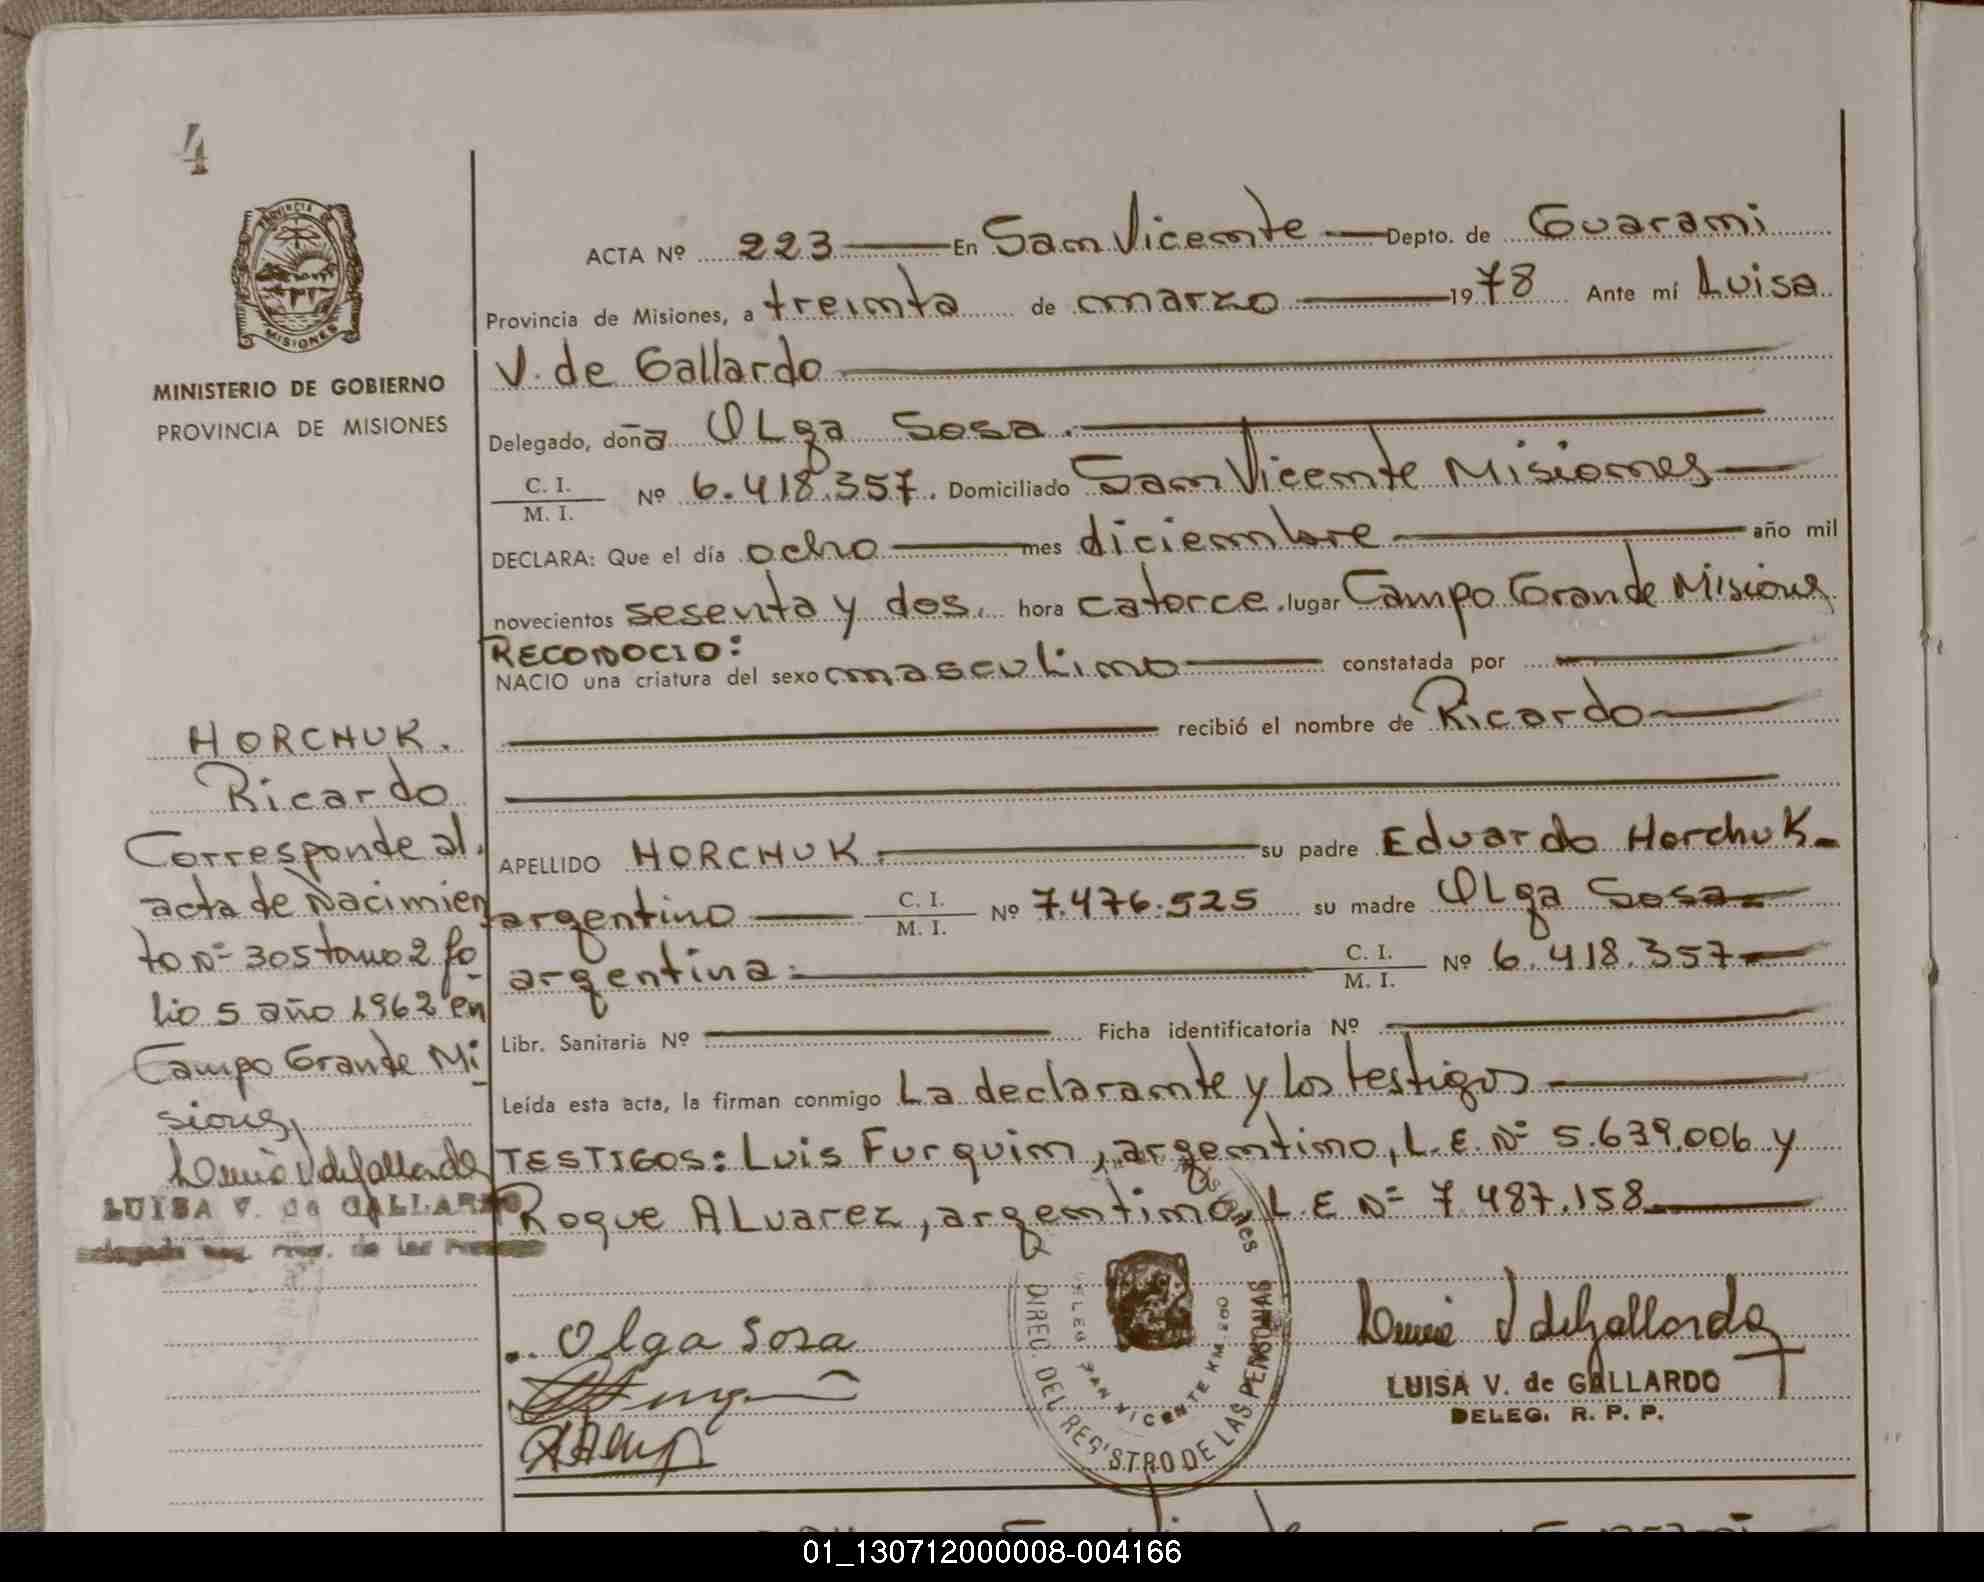 4
PROVINCIA DE
MISIONES
MINISTERIO DE GOBIERNO
PROVINCIA DE MISIONES
HORCHUK.
Ricardo
Corresponde al
acta de Nacimien
to Nº 305 tomo 2 fo
lio 5 año 1962 en
Campo Grande Mi
siones,
LUISA V. de GALLARDO
ACTA Nº 223 En San Vicente Depto. de Guarani
Provincia de Misiones, a treinta de marzo 1978 Ante mí Luisa
V. de Gallardo
Delegado, doña Olga Sosa.
C. I.
M. I. Nº 6.418.357. Domiciliado San Vicente Misiones
DECLARA: Que el día ocho mes diciembre año mil
novecientos sesenta y dos. hora catorce. lugar Campo Grande Misiones
RECONOCIO:
NACIO una criatura del sexo masculino constatada por
recibió el nombre de Ricardo
APELLIDO HORCHUK. su padre Eduardo Horchuk
argentino C. I. M. I. Nº 7.476.525 su madre Olga Sosa
argentina. C. I. M. I. Nº 6.418.357
Libr. Sanitaria Nº Ficha identificatoria Nº
Leída esta acta, la firman conmigo La declarante y los testigos
TESTIGOS: Luis Furquim, argentino, L.E. Nº 5.639.006 y
Roque ALvarez, argentino, L.E Nº 7 487.158
Olga Sosa
DIREC. DEL REGISTRO DE LAS PERSONAS
SAN VICENTE KM 200
LUISA V. de GALLARDO
DELEG. R. P. P.
01_130712000008-004166